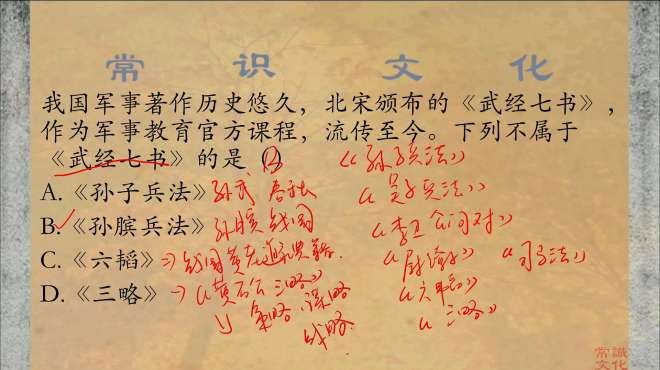 常识文化
我国军事著作历史悠久，北宋颁布的《武经七书》，
作为军事教育官方课程，流传至今。下列不属于
《武经七书》的是（） 《孙子兵法》
A.《孙子兵法》孙武 春秋 《吴子兵法》
B.《孙膑兵法》孙膑 战国 《李卫公问对》
C.《六韬》 战国黄老道家典籍. 《尉缭子》 《司马法》
D.《三略》 《黄石公三略》 《六韬》
战略. 《三略》
常識
文化